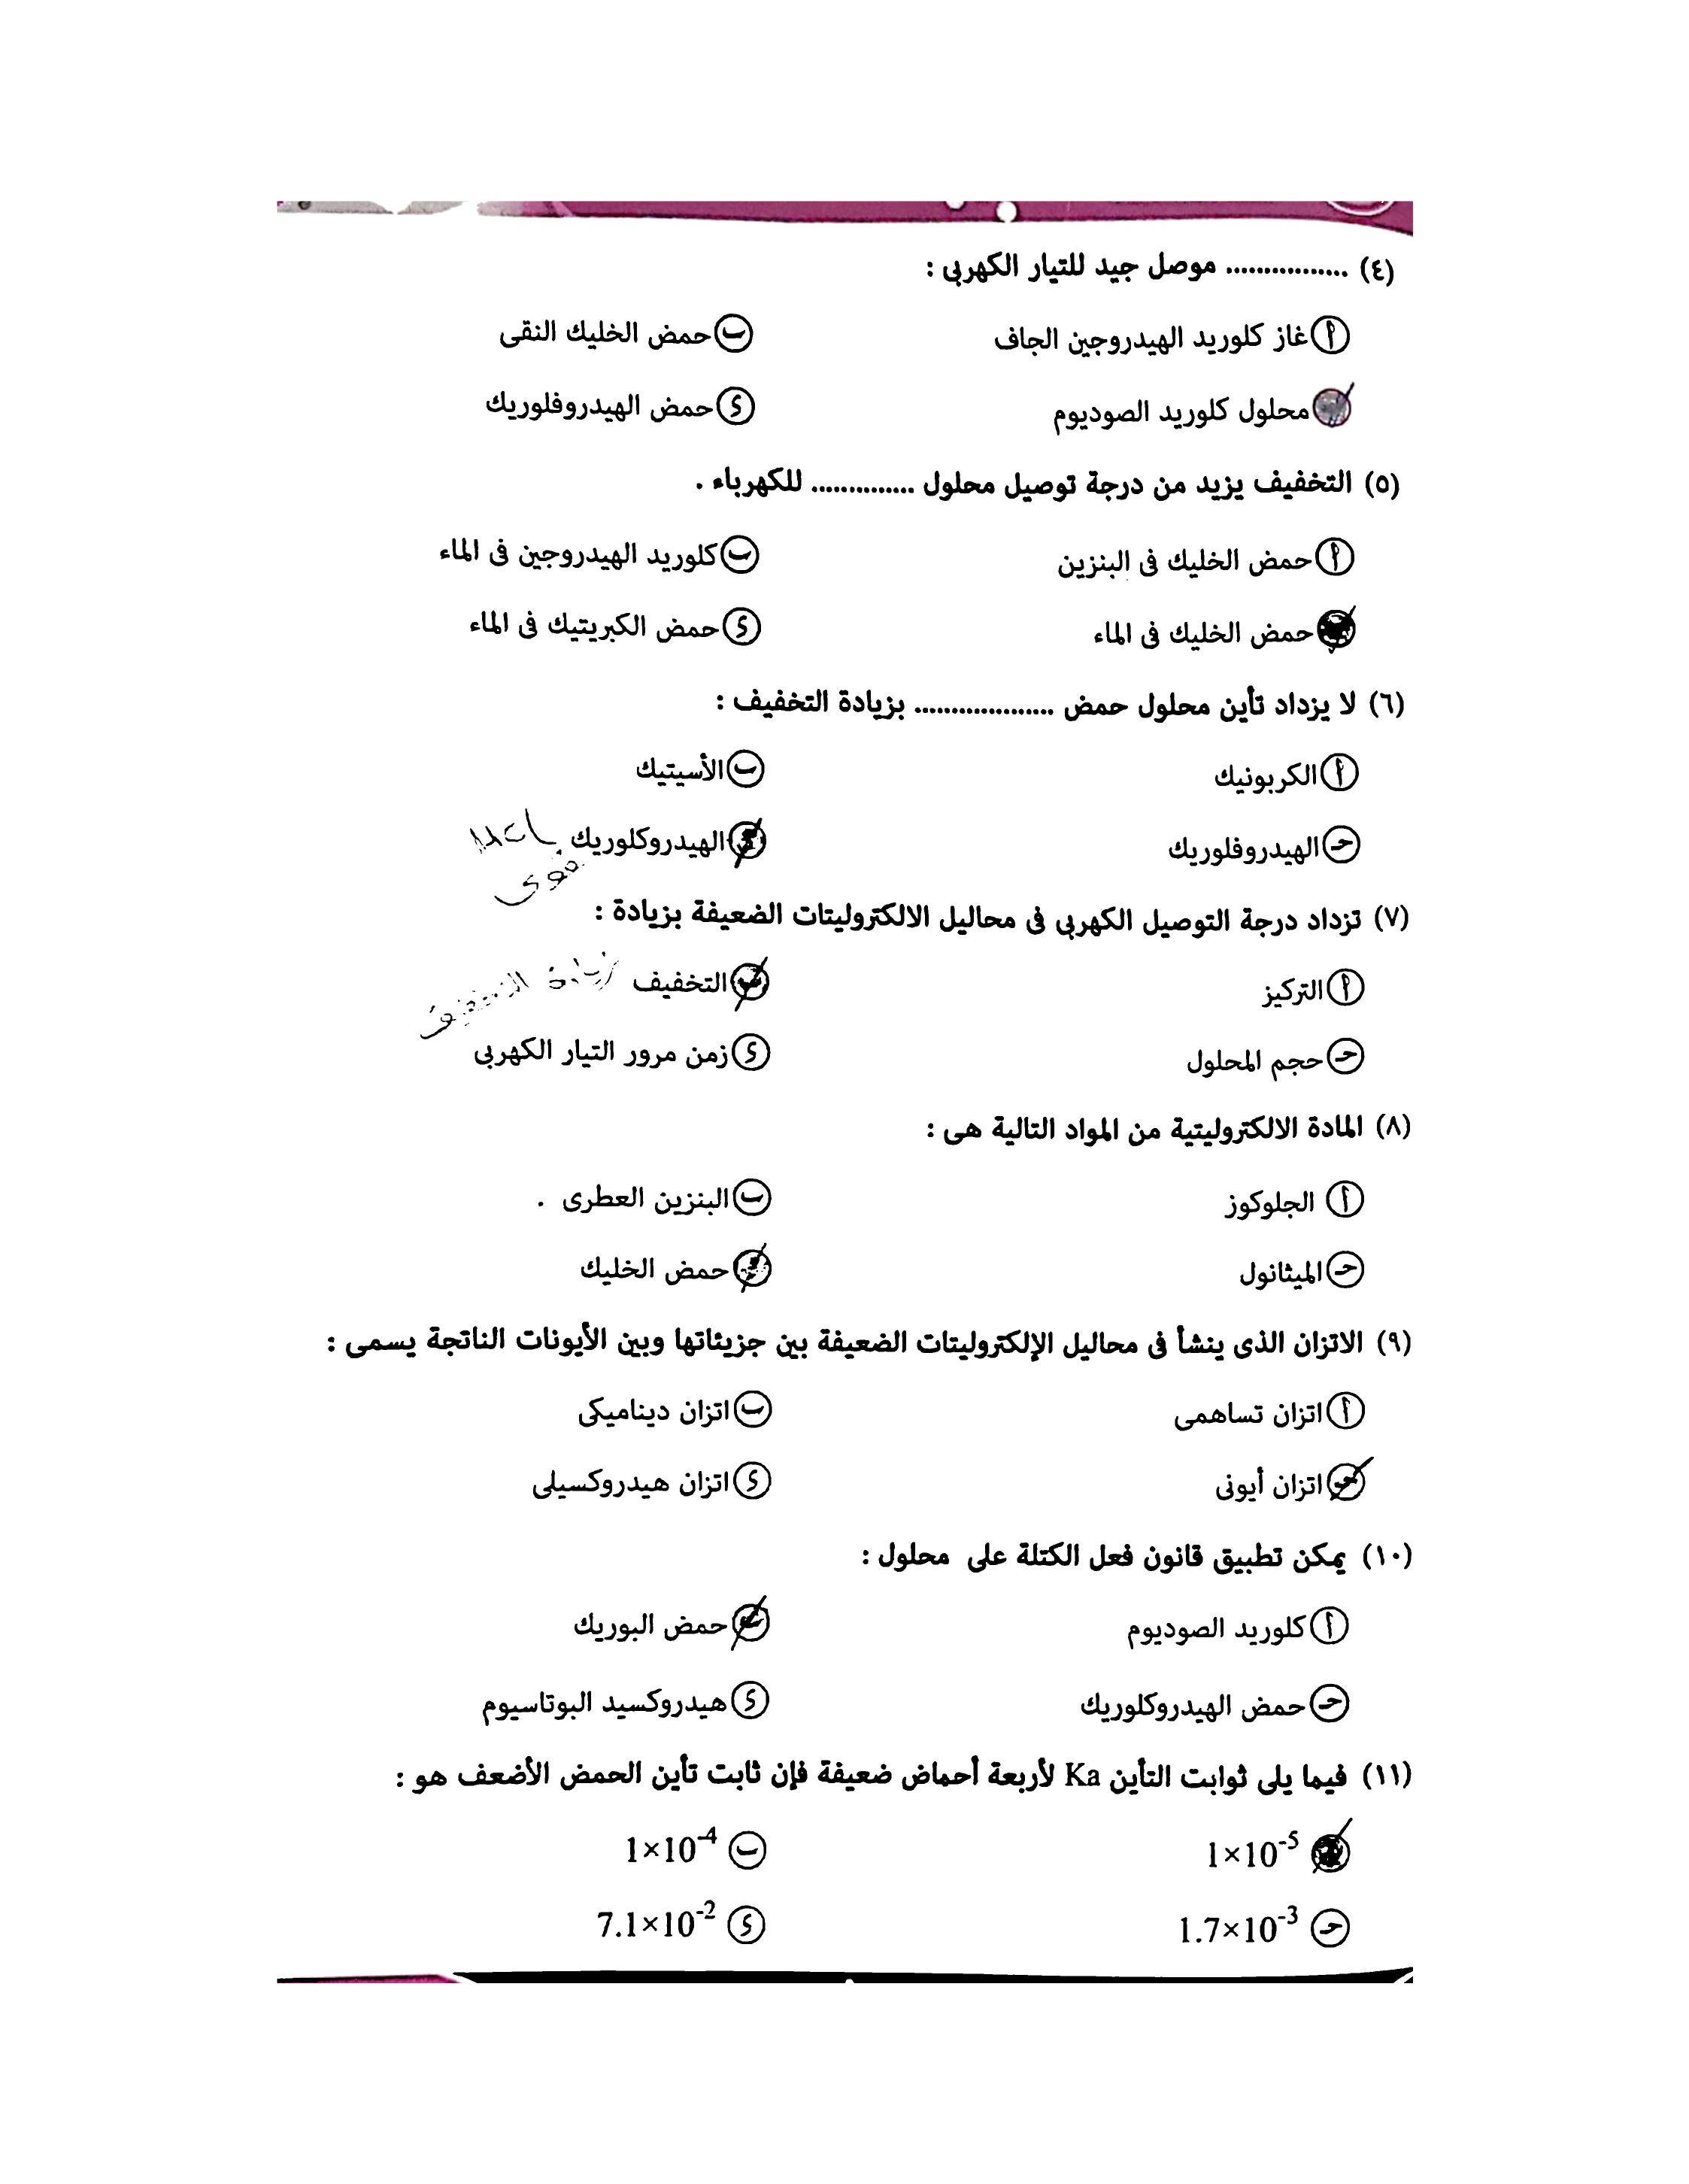 (٤) ................ موصل جيد للتيار الكهربى :
أ غاز كلوريد الهيدروجين الجاف ب حمض الخليك النقى
محلول كلوريد الصوديوم د حمض الهيدروفلوريك
(٥) التخفيف يزيد من درجة توصيل محلول .............. للكهرباء .
أ حمض الخليك فى البنزين ب كلوريد الهيدروجين فى الماء
حمض الخليك فى الماء د حمض الكبريتيك فى الماء
(٦) لا يزداد تأين محلول حمض ................... بزيادة التخفيف :
أ الكربونيك ب الأسيتيك
حـ الهيدروفلوريك د الهيدروكلوريك HCl
قوى
(٧) تزداد درجة التوصيل الكهربى فى محاليل الالكتروليتات الضعيفة بزيادة :
أ التركيز ب التخفيف زيادة التخفيف
حـ حجم المحلول د زمن مرور التيار الكهربى
(٨) المادة الالكتروليتية من المواد التالية هى :
أ الجلوكوز ب البنزين العطرى .
حـ الميثانول د حمض الخليك
(٩) الاتزان الذى ينشأ فى محاليل الإلكتروليتات الضعيفة بين جزيئاتها وبين الأيونات الناتجة يسمى :
أ اتزان تساهمى ب اتزان ديناميكى
حـ اتزان أيونى د اتزان هيدروكسيلى
(١٠) يمكن تطبيق قانون فعل الكتلة على محلول :
أ كلوريد الصوديوم ب حمض البوريك
حـ حمض الهيدروكلوريك د هيدروكسيد البوتاسيوم
(١١) فيما يلى ثوابت التأين Ka لأربعة أحماض ضعيفة فإن ثابت تأين الحمض الأضعف هو :
1×10⁻⁵ ب 1×10⁻⁴
حـ 1.7×10⁻³ د 7.1×10⁻²